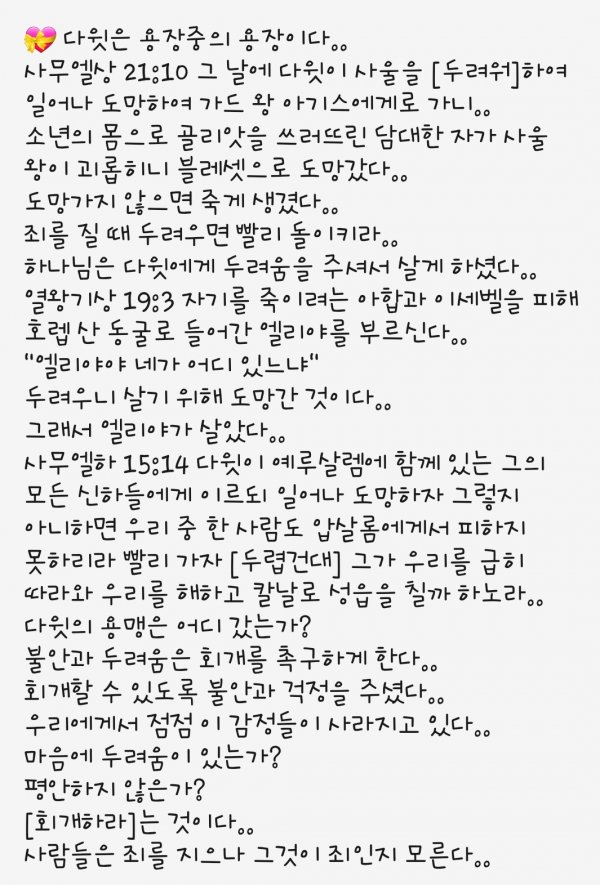 💝 다윗은 용장중의 용장이다。。
사무엘상 21:10 그 날에 다윗이 사울을 [두려워]하여
일어나 도망하여 가드 왕 아기스에게로 가니。。
소년의 몸으로 골리앗을 쓰러뜨린 담대한 자가 사울
왕이 괴롭히니 블레셋으로 도망갔다。。
도망가지 않으면 죽게 생겼다。。
죄를 질 때 두려우면 빨리 돌이키라。。
하나님은 다윗에게 두려움을 주셔서 살게 하셨다。。
열왕기상 19:3 자기를 죽이려는 아합과 이세벨을 피해
호렙 산 동굴로 들어간 엘리야를 부르신다。。
"엘리야야 네가 어디 있느냐"
두려우니 살기 위해 도망간 것이다。。
그래서 엘리야가 살았다。。
사무엘하 15:14 다윗이 예루살렘에 함께 있는 그의
모든 신하들에게 이르되 일어나 도망하자 그렇지
아니하면 우리 중 한 사람도 압살롬에게서 피하지
못하리라 빨리 가자 [두렵건대] 그가 우리를 급히
따라와 우리를 해하고 칼날로 성읍을 칠까 하노라。。
다윗의 용맹은 어디 갔는가?
불안과 두려움은 회개를 촉구하게 한다。。
회개할 수 있도록 불안과 걱정을 주셨다。。
우리에게서 점점 이 감정들이 사라지고 있다。。
마음에 두려움이 있는가?
평안하지 않은가?
[회개하라]는 것이다。。
사람들은 죄를 지으나 그것이 죄인지 모른다。。